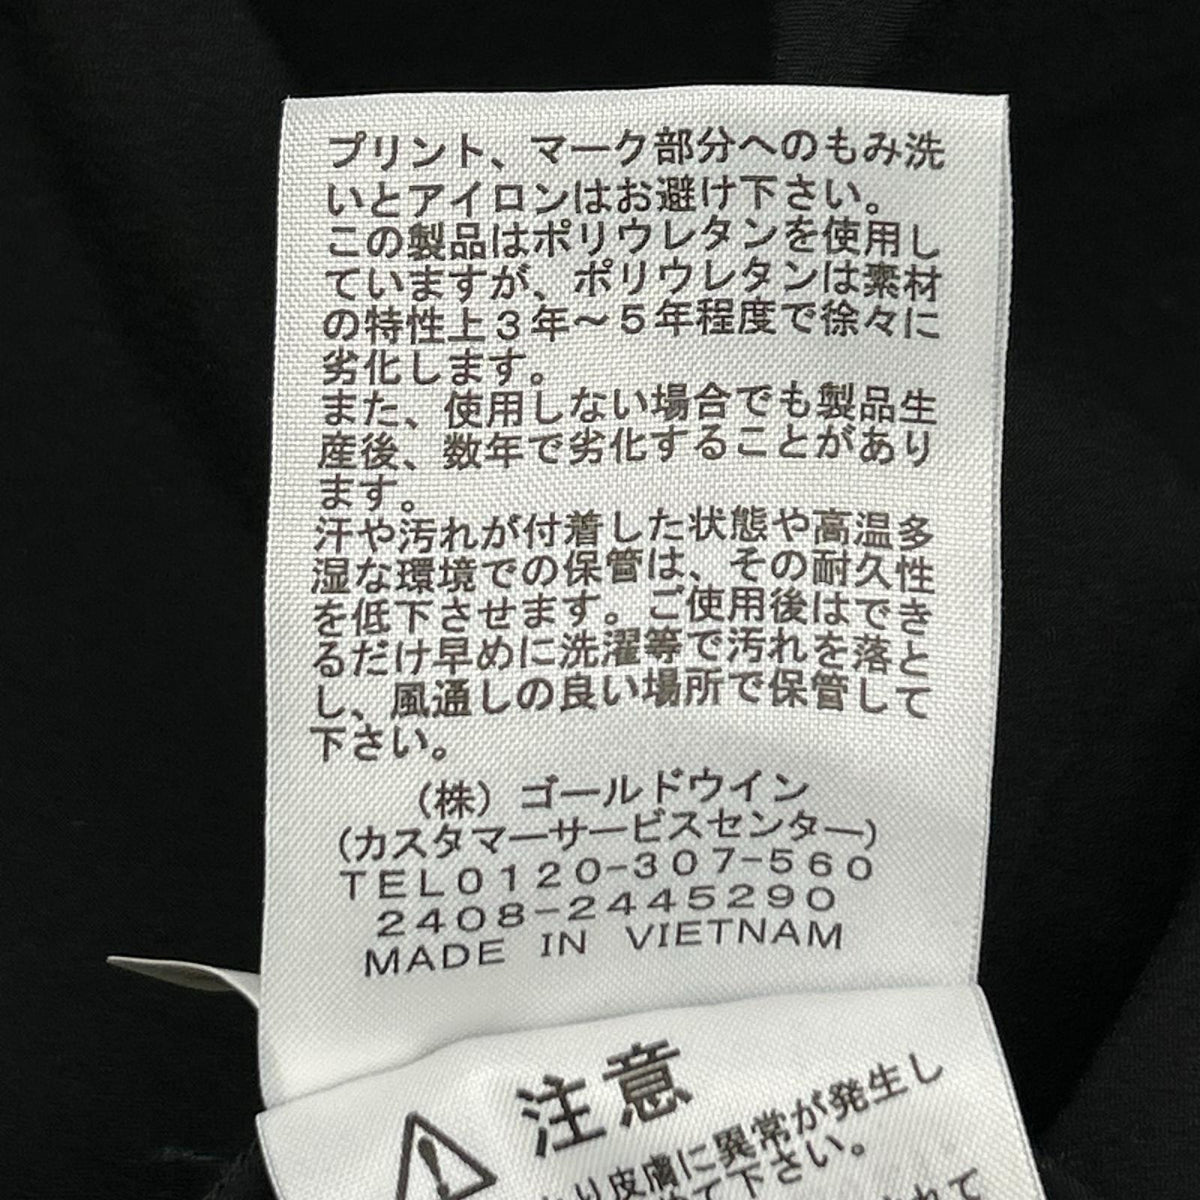 プリント、マーク部分へのもみ洗
いとアイロンはお避け下さい。
この製品はポリウレタンを使用し
ていますが、ポリウレタンは素材
の特性上3年～5年程度で徐々に
劣化します。
また、使用しない場合でも製品生
産後、数年で劣化することがあり
ます。
汗や汚れが付着した状態や高温多
湿な環境での保管は、その耐久性
を低下させます。ご使用後はでき
るだけ早めに洗濯等で汚れを落と
し、風通しの良い場所で保管して
下さい。
(株)ゴールドウイン
(カスタマーサービスセンター)
TEL0120-307-560
2408-2445290
MADE IN VIETNAM
注意
り皮膚に異常が発生し
て下さい。
れて